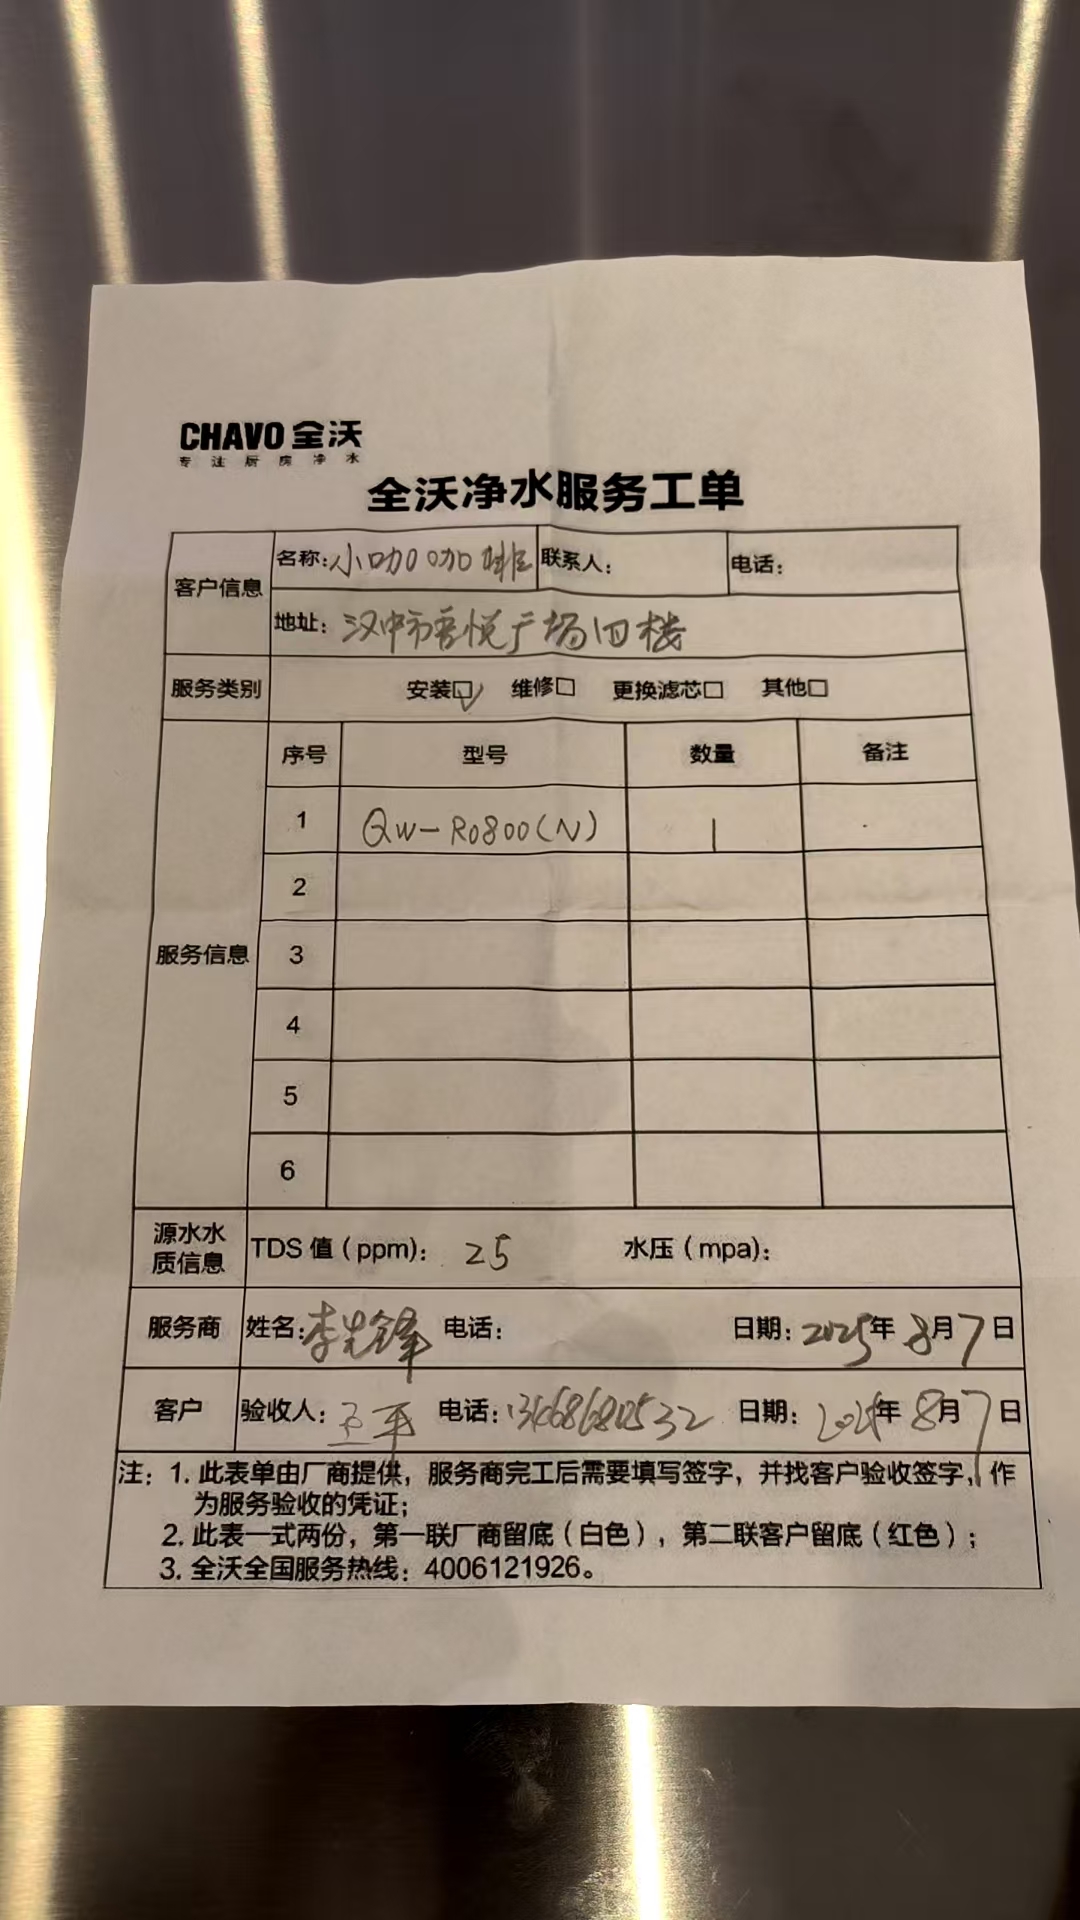 CHAVO 全沃
专注厨房净水
全沃净水服务工单
客户信息 名称:小咖咖啡 联系人: 电话:
地址: 汉中市吾悦广场四楼
服务类别 安装☑ 维修□ 更换滤芯□ 其他□
服务信息 序号 型号 数量 备注
1 QW-RO800(N) 1
2
3
4
5
6
源水水质信息 TDS 值(ppm): 25 水压(mpa):
服务商 姓名:李先锋 电话: 日期: 2025年 8月7日
客户 验收人: 电话: 日期: 年 8月7日
注: 1. 此表单由厂商提供, 服务商完工后需要填写签字, 并找客户验收签字, 作
为服务验收的凭证;
2. 此表一式两份, 第一联厂商留底(白色), 第二联客户留底(红色);
3. 全沃全国服务热线: 4006121926。